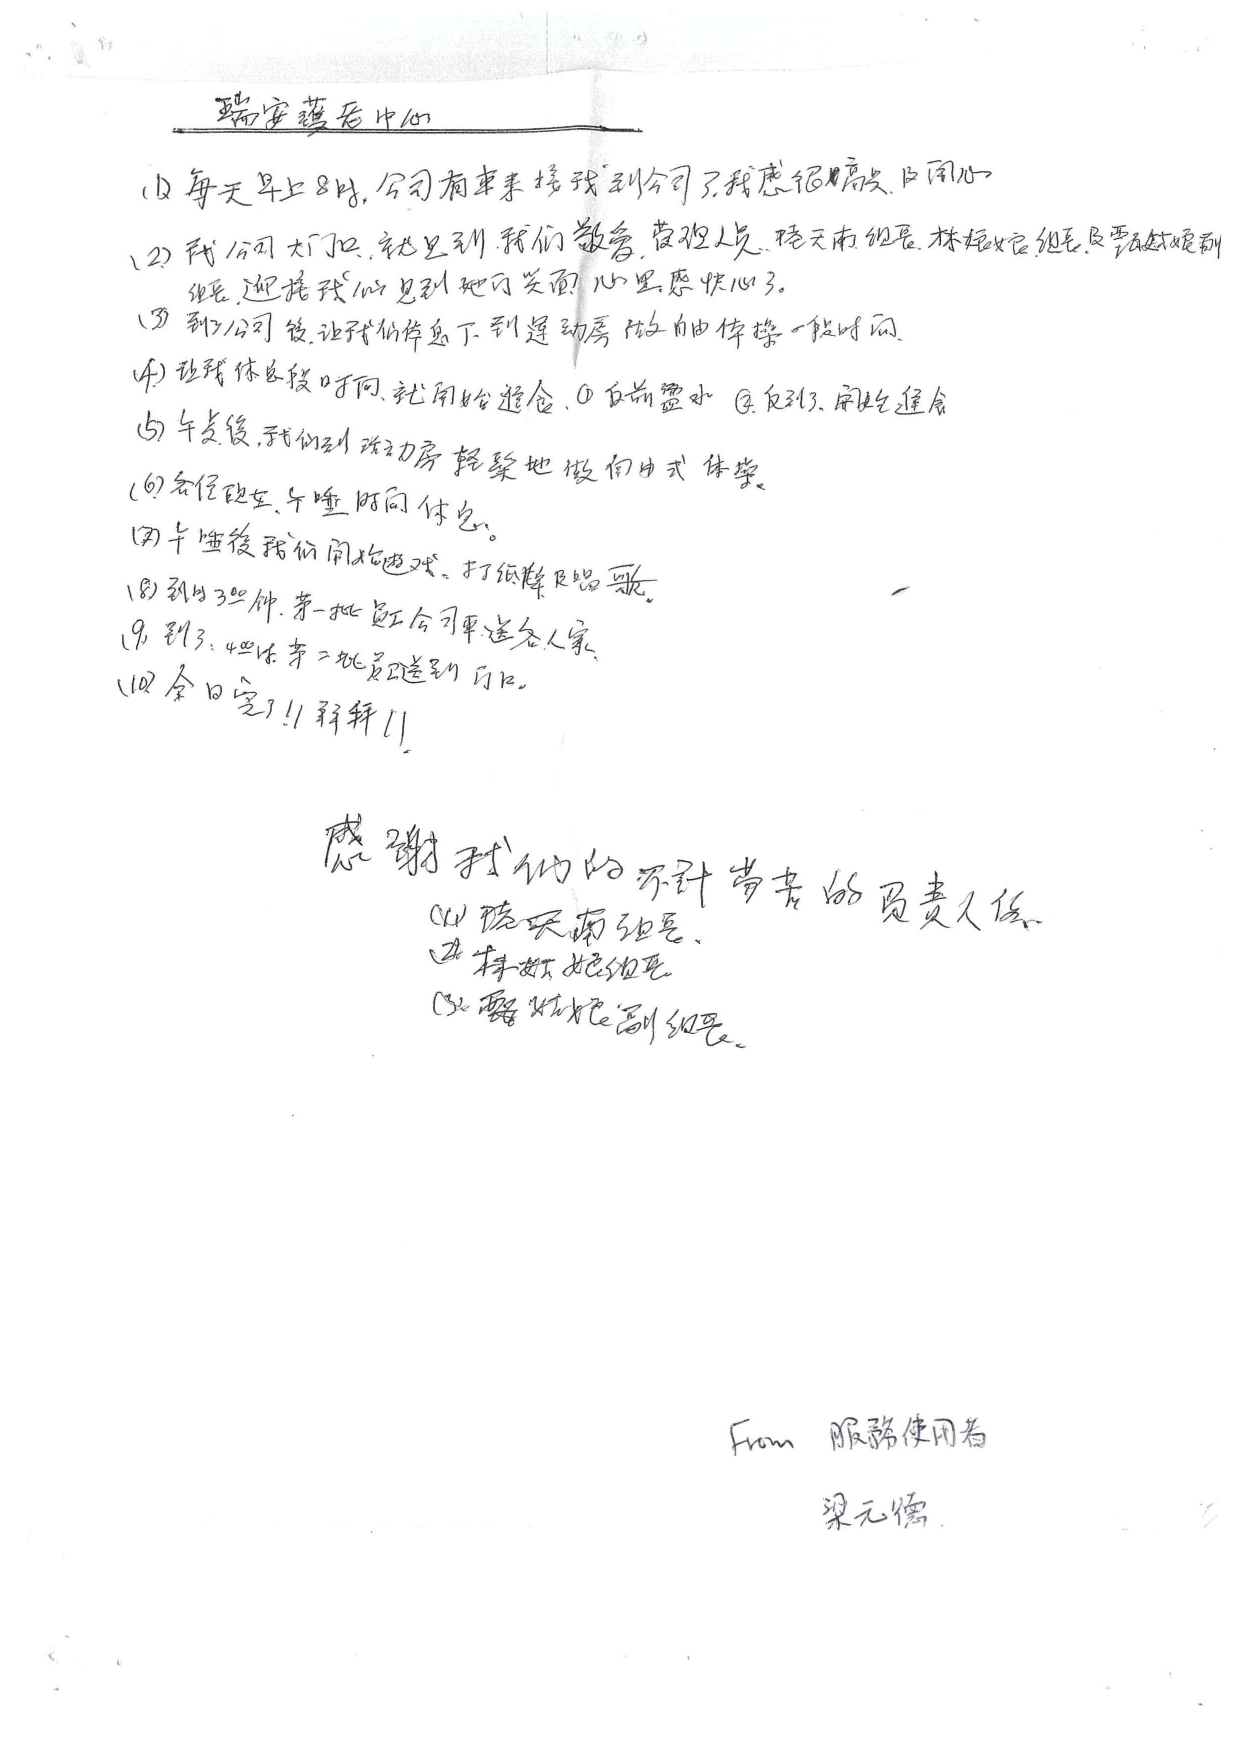 瑞安護老中心
(1) 每天早上8时,公司有車来接我到公司了,我感很高兴及開心
(2) 我公司大门口,就见到我们敬爱管理人员,陸天南组長,林組長及副
组長,迎接我们见到她的笑面心里感快心了。
(3) 到了公司後,让我们休息下到運动房做自由体操一段时间.
(4) 让我休息段时间、就開始進食、① 反前 水 ② 反到了、開始進食
(5) 午食後,我们到活动房輕鬆地做自由式体操。
(6) 各位、午睡时间休息。
(7) 午睡後我们開始遊戏、打纸牌及唱歌。
(8) 到3:00钟,第一批員工公司車送各人家.
(9) 到了,4:00时第二批員工送到门口。
(10) 今日完了!! 拜拜!!
感謝我们的不計勞苦的負責人係
(1) 陸天南组長.
(2) 林 组長
(3) 副组長。
From 服務使用者
梁元德.